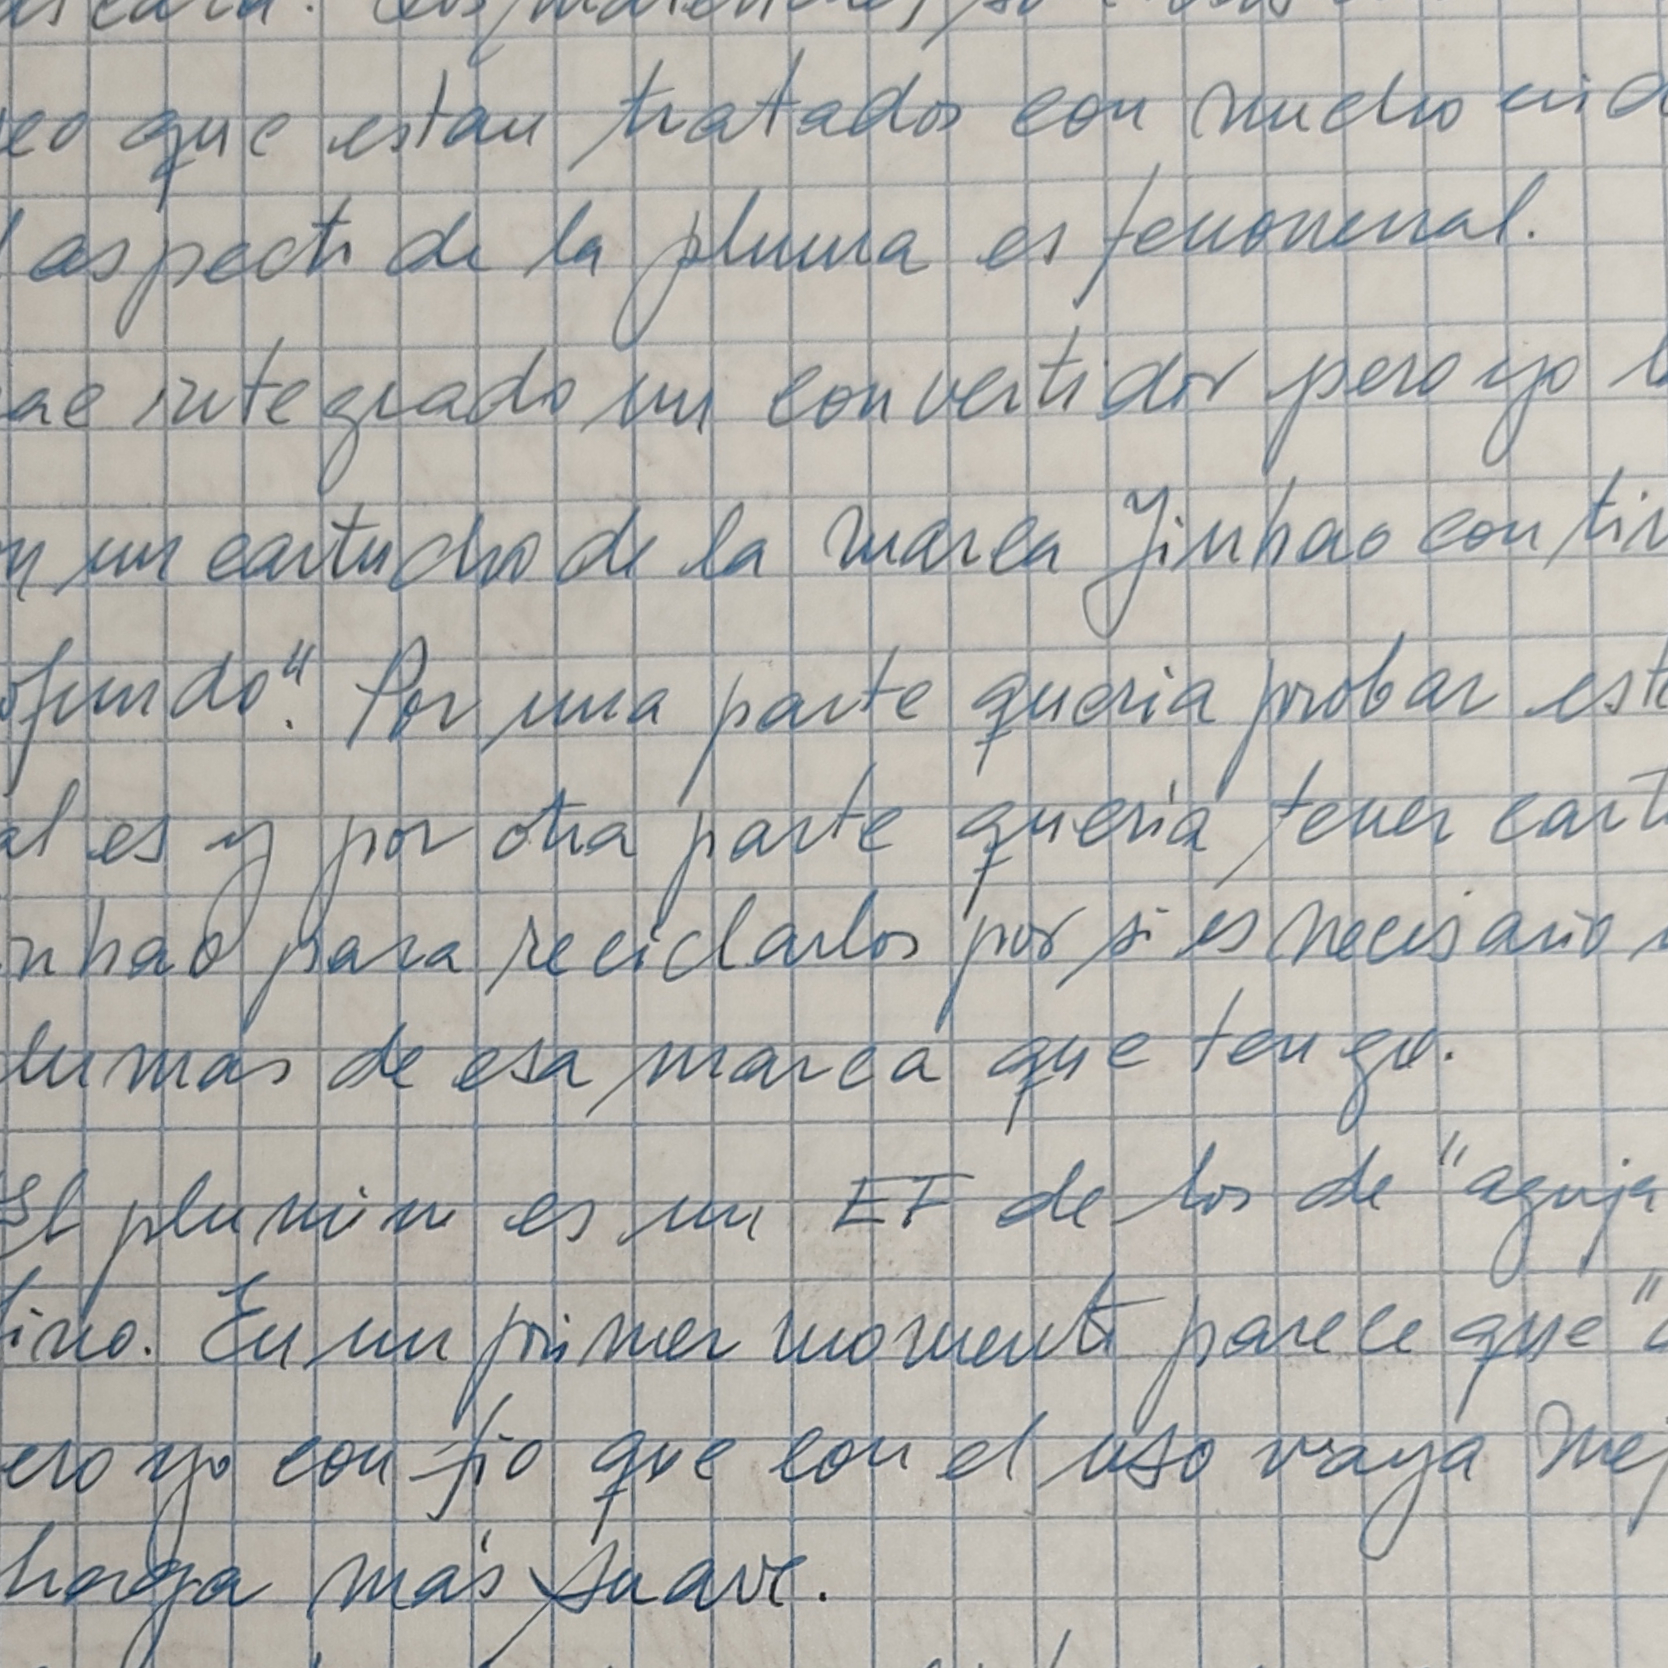 que estan tratados con mucho
aspecto de la pluma es fenomenal.
integrado un convertidor pero yo
un cartucho de la marca Jinhao con
ofundo". Por una parte queria probar
al es y por otra parte quería tener
nhao para reciclarlos por si es necesario
lumas de esa marca que tengo.
El plumin es un EF de los de "aguja
fino. En un primer momento parece que "
ero yo confio que con el uso vaya mej
haga más suave.